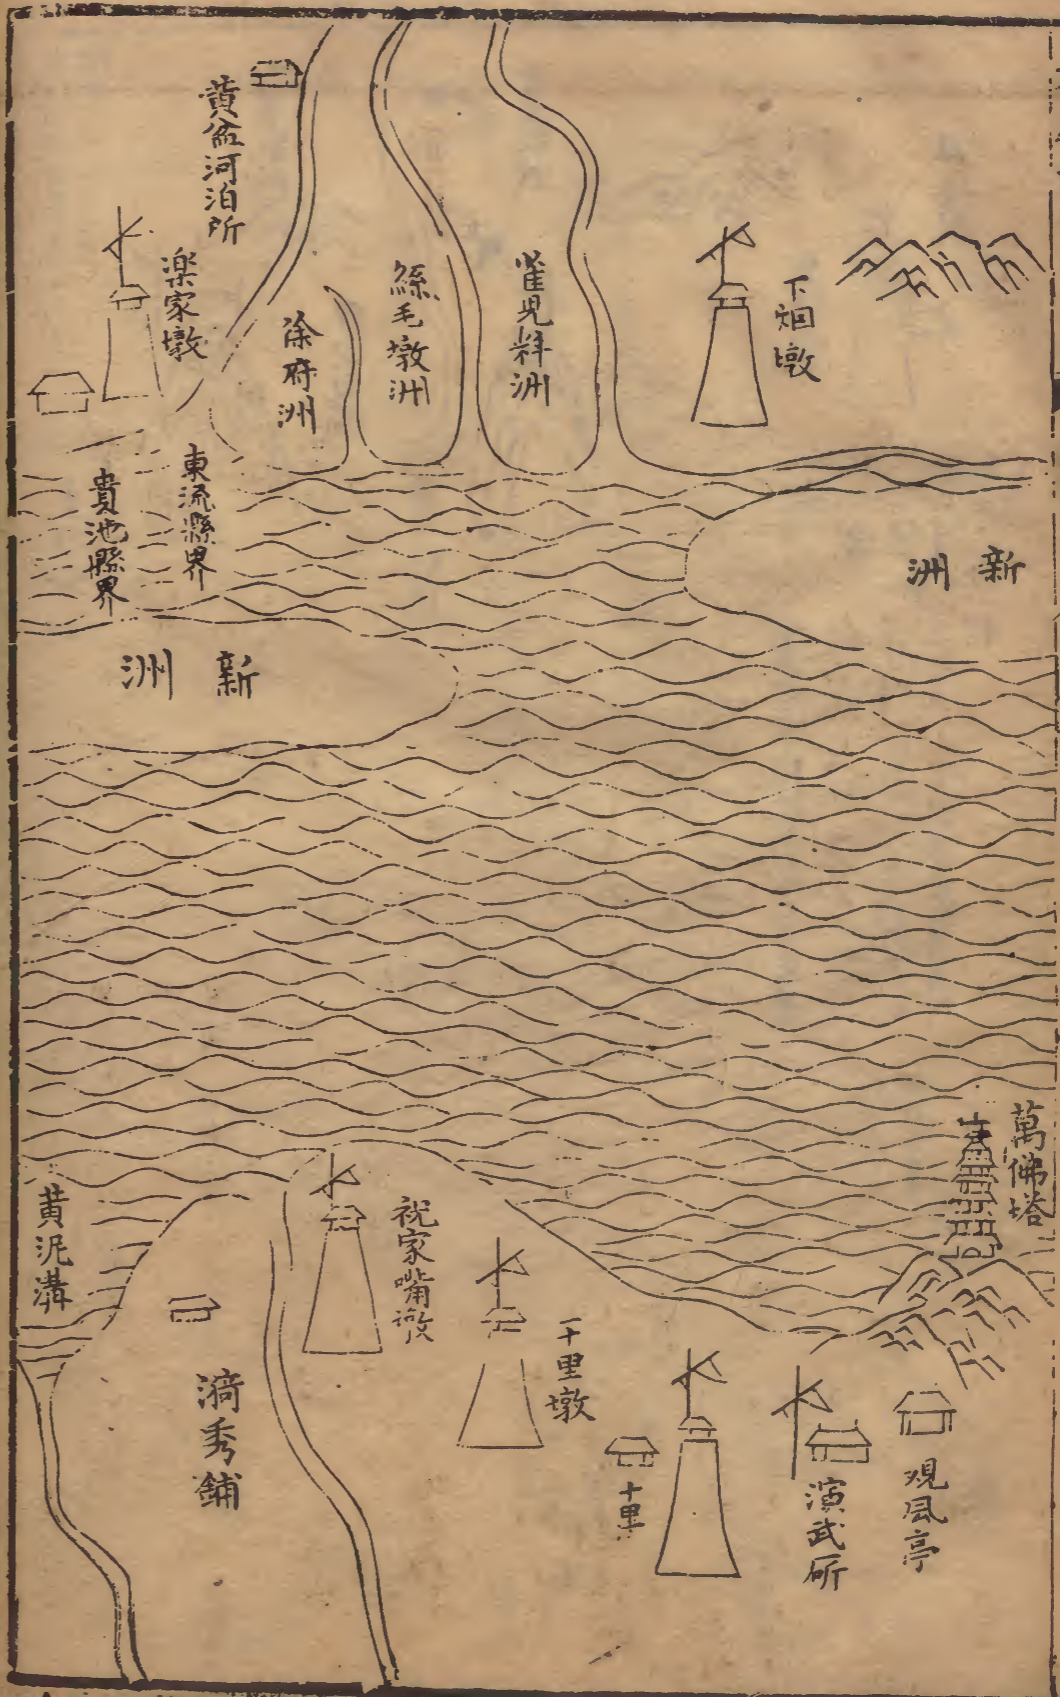 下烟墩
雀見料洲
絲毛墩洲
徐府洲
黄盆河泊所
楽家墩
東流縣界
貴池縣界
新洲
新洲
萬佛塔
观风亭
演武所
十里
十里墩
祝家嘴墩
漪秀鋪
黄泥溝